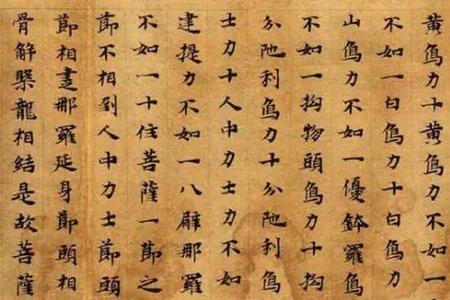 黄象力十黄象力不如一
不如一白象力十白象力
山象力不如一優鉢羅象
不如一拘物頭象力十拘
分陁利象力十分陁利象
士力十人中力士力不如
建提力不如一八臂那羅
不如一十住菩薩一節之
節不相到人中力士節頭
節相那羅延身節頭相
骨解槃龍相結是故菩薩